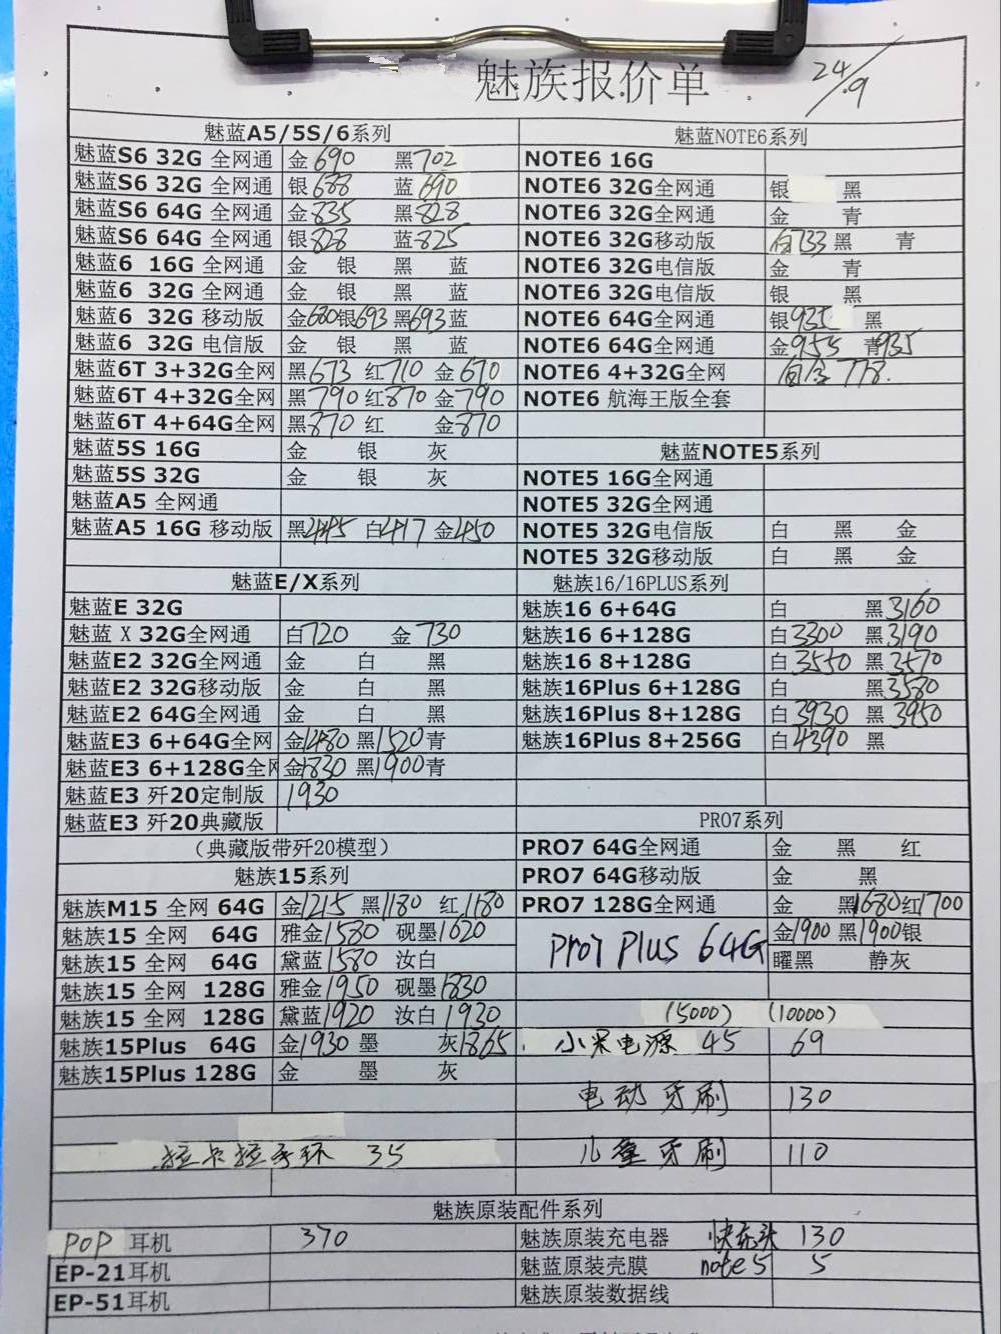 魅族报价单 24/9
魅蓝A5/5S/6系列
魅蓝S6 32G 全网通 金690 黑702
魅蓝S6 32G 全网通 银688 蓝690
魅蓝S6 64G 全网通 金835 黑828
魅蓝S6 64G 全网通 银828 蓝825
魅蓝6 16G 全网通 金 银 黑 蓝
魅蓝6 32G 全网通 金 银 黑 蓝
魅蓝6 32G 移动版 金680银693黑693蓝
魅蓝6 32G 电信版 金 银 黑 蓝
魅蓝6T 3+32G全网 黑673 红710 金670
魅蓝6T 4+32G全网 黑790 红870 金790
魅蓝6T 4+64G全网 黑870 红 金870
魅蓝5S 16G 金 银 灰
魅蓝5S 32G 金 银 灰
魅蓝A5 全网通
魅蓝A5 16G 移动版 黑445 白417 金450
魅蓝E/X系列
魅蓝E 32G
魅蓝 X 32G全网通 白720 金730
魅蓝E2 32G全网通 金 白 黑
魅蓝E2 32G移动版 金 白 黑
魅蓝E2 64G全网通 金 白 黑
魅蓝E3 6+64G全网 金1480 黑1520青
魅蓝E3 6+128G全网 金1830 黑1900青
魅蓝E3 歼20定制版 1930
魅蓝E3 歼20典藏版
（典藏版带歼20模型）
魅族15系列
魅族M15 全网 64G 金1215 黑1180 红1180
魅族15 全网 64G 雅金1580 砚墨1620
魅族15 全网 64G 黛蓝1580 汝白
魅族15 全网 128G 雅金1950 砚墨1830
魅族15 全网 128G 黛蓝1920 汝白1930
魅族15Plus 64G 金1930 墨 灰1865
魅族15Plus 128G 金 墨 灰
拉卡拉手环 35
魅蓝NOTE6系列
NOTE6 16G
NOTE6 32G全网通 银 黑
NOTE6 32G全网通 金 青
NOTE6 32G移动版 白733 黑 青
NOTE6 32G电信版 金 青
NOTE6 32G电信版 银 黑
NOTE6 64G全网通 银935 黑
NOTE6 64G全网通 金955 青935
NOTE6 4+32G全网 778.
NOTE6 航海王版全套
魅蓝NOTE5系列
NOTE5 16G全网通
NOTE5 32G全网通
NOTE5 32G电信版 白 黑 金
NOTE5 32G移动版 白 黑 金
魅族16/16PLUS系列
魅族16 6+64G 白 黑3160
魅族16 6+128G 白3300 黑3190
魅族16 8+128G 白3550 黑3570
魅族16Plus 6+128G 白 黑3580
魅族16Plus 8+128G 白3930 黑3950
魅族16Plus 8+256G 白4390 黑
PRO7系列
PRO7 64G全网通 金 黑 红
PRO7 64G移动版 金 黑
PRO7 128G全网通 金 黑1680红1700
Pro7 Plus 64G 金1900 黑1900银
曜黑 静灰
（5000） （10000）
小米电源 45 69
电动牙刷 130
儿童牙刷 110
魅族原装配件系列
POP 耳机 370 魅族原装充电器 快充头 130
EP-21耳机 魅蓝原装壳膜 note5 5
EP-51耳机 魅族原装数据线